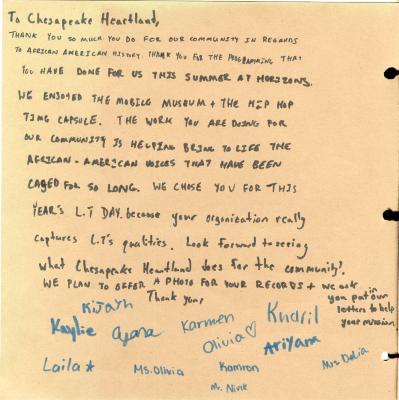 To Chesapeake Heartland,
THANK YOU SO MUCH YOU DO FOR OUR COMMUNITY IN REGARDS
TO AFRICAN AMERICAN HISTORY. THANK YOU FOR THE PROGRAMMING THAT
YOU HAVE DONE FOR US THIS SUMMER AT HORIZONS.
WE ENJOYED THE MOBILE MUSEUM + THE HIP HOP
TIME CAPSULE. THE WORK YOU ARE DOING FOR
OUR COMMUNITY IS HELPING BRING TO LIFE THE
AFRICAN-AMERICAN VOICES THAT HAVE BEEN
CAGED FOR SO LONG. WE CHOSE YOU FOR THIS
YEAR'S L.T DAY because your organization really
captures L.T's qualities. Look forward to seeing
what Chesapeake Heartland does for the community!
WE PLAN TO OFFER A PHOTO FOR YOUR RECORDS + we ask
you put our in
letters to help
your mission
Thank you!
Kijayh
Kaylie ayana Karmen Kudril
Olivia♡ Ariyana
Laila★ Ms. Olivia Kamron Mrs Dalia
Mr. Nivek